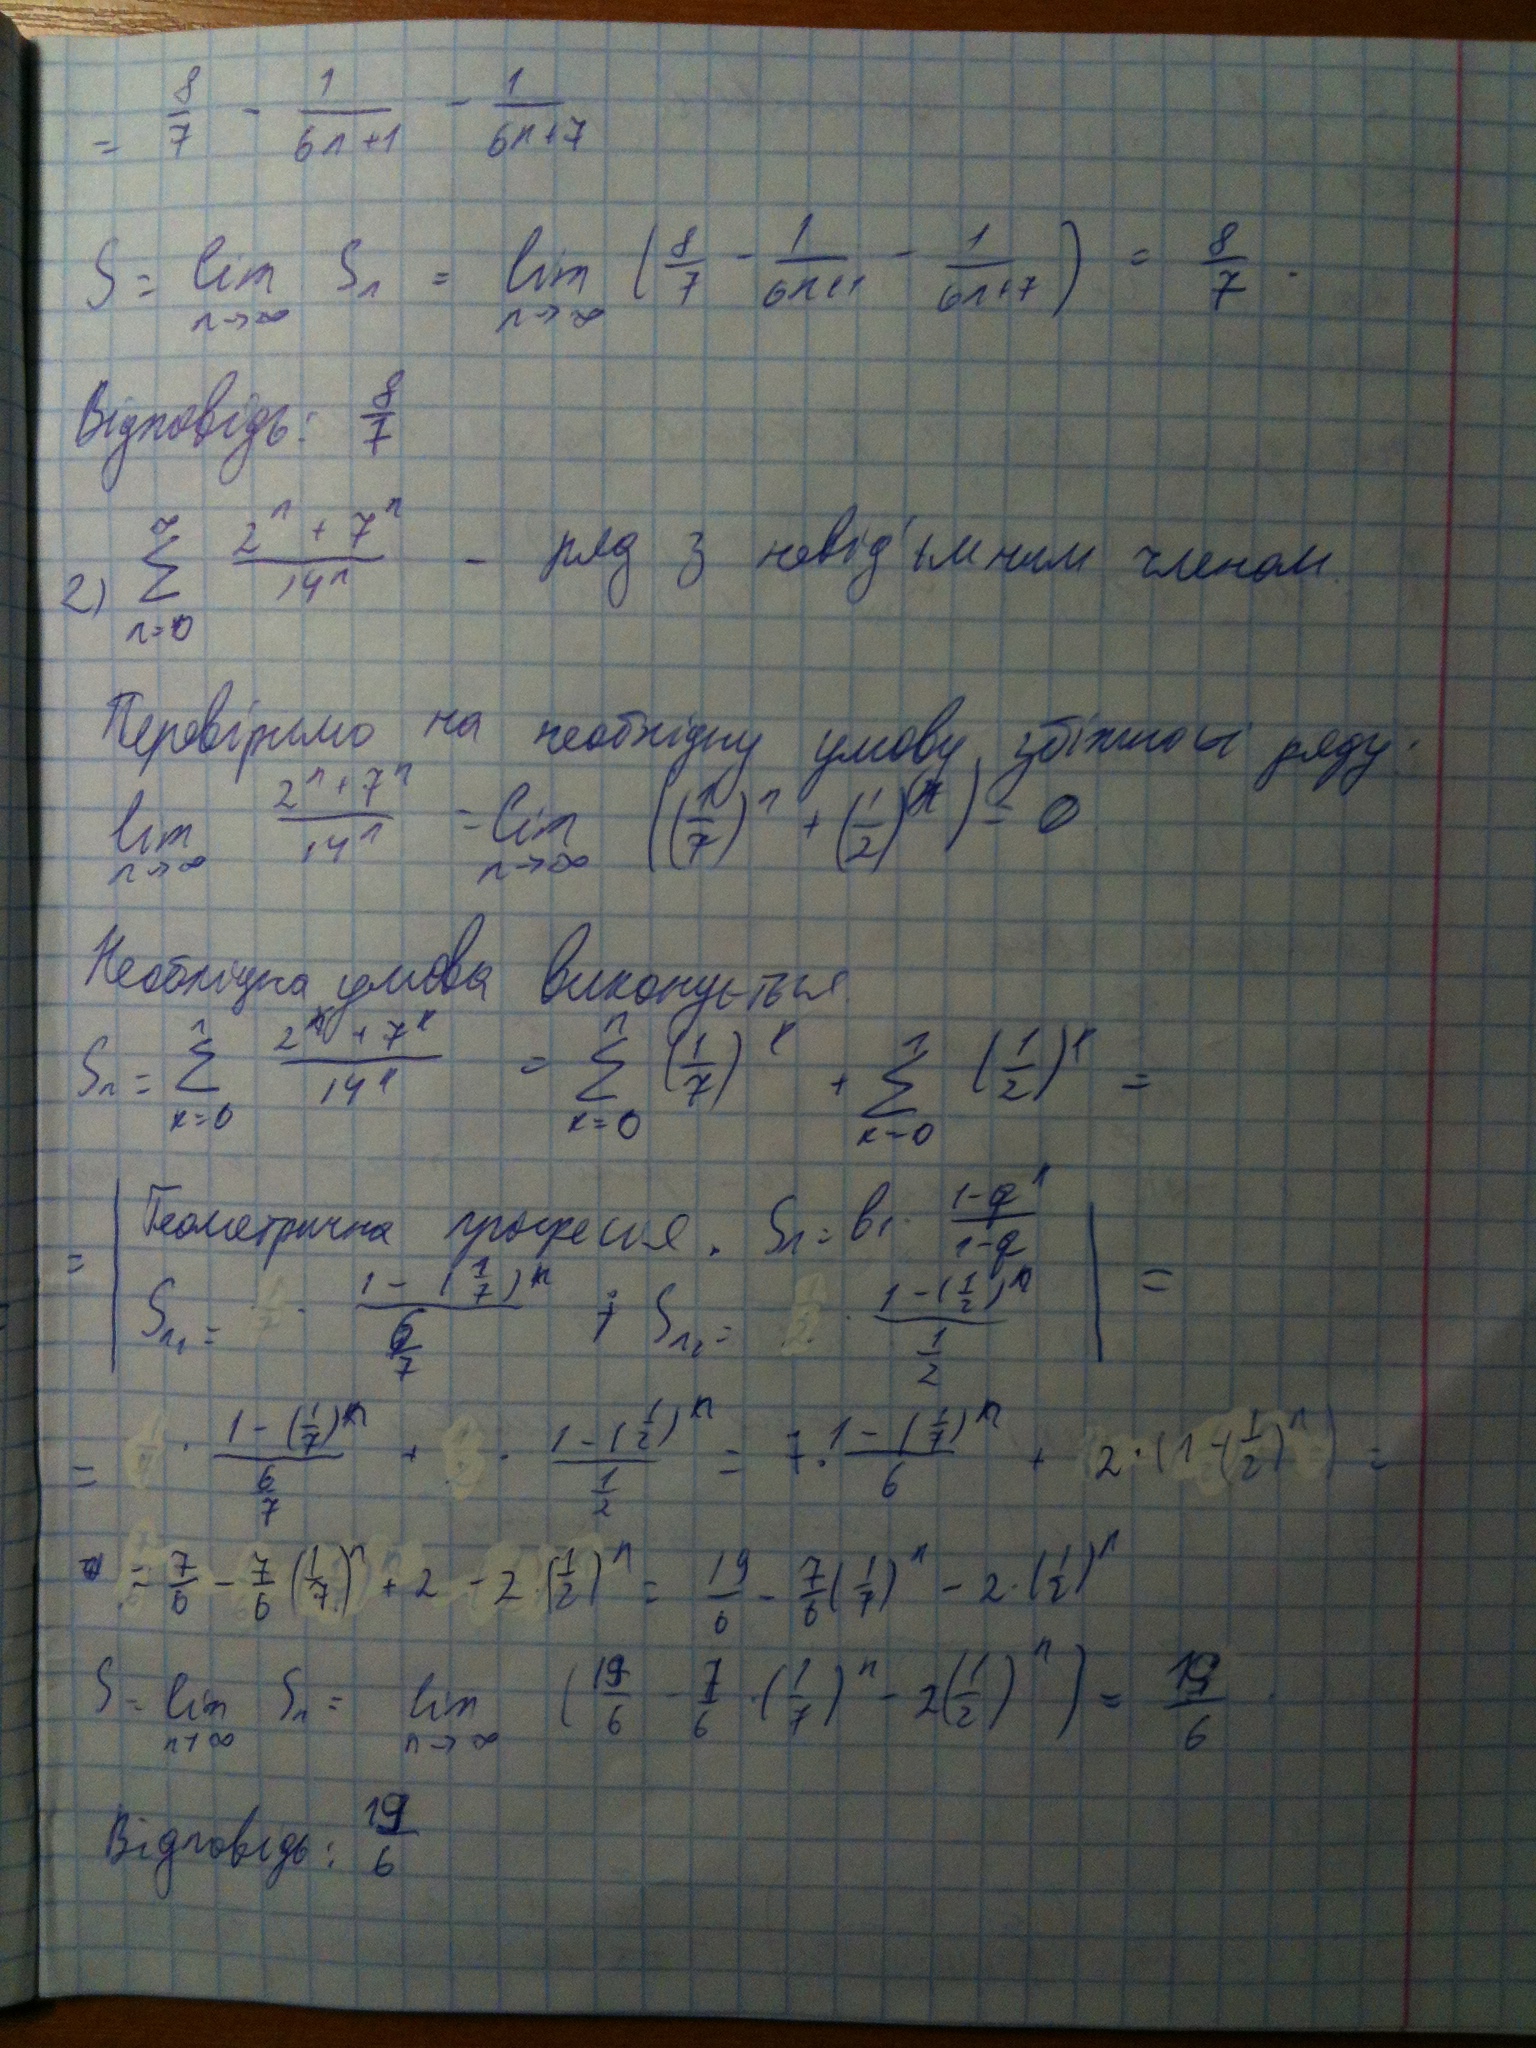 = 8/7 - 1/(6n+1) - 1/(6n+7)
S = lim_{n→∞} S_n = lim_{n→∞} (8/7 - 1/(6n+1) - 1/(6n+7)) = 8/7.
Відповідь: 8/7
2) ∑_{n=0}^{∞} (2^n + 7^n)/14^n - ряд з невід'ємним членом.
Перевіримо на необхідну умову збіжності ряду.
lim_{n→∞} (2^n + 7^n)/14^n = lim_{n→∞} ((1/7)^n + (1/2)^n) = 0
Необхідна умова виконується.
S_n = ∑_{k=0}^{n} (2^k + 7^k)/14^k = ∑_{k=0}^{n} (1/7)^k + ∑_{k=0}^{n} (1/2)^k =
= | Геометрична прогресія. S_n = b_1 · (1-q^n)/(1-q)
S_{n_1} = (1-(1/7)^n)/(6/7) ; S_{n_2} = · (1-(1/2)^n)/(1/2) | =
= · (1-(1/7)^n)/(6/7) + · (1-(1/2)^n)/(1/2) = 7 · (1-(1/7)^n)/6 + (2·(1-(1/2)^n) =
= 7/6 - 7/6 (1/7)^n + 2 - 2·(1/2)^n = 19/6 - 7/6 (1/7)^n - 2·(1/2)^n
S = lim_{n→∞} S_n = lim_{n→∞} (19/6 - 7/6 · (1/7)^n - 2(1/2)^n) = 19/6.
Відповідь: 19/6